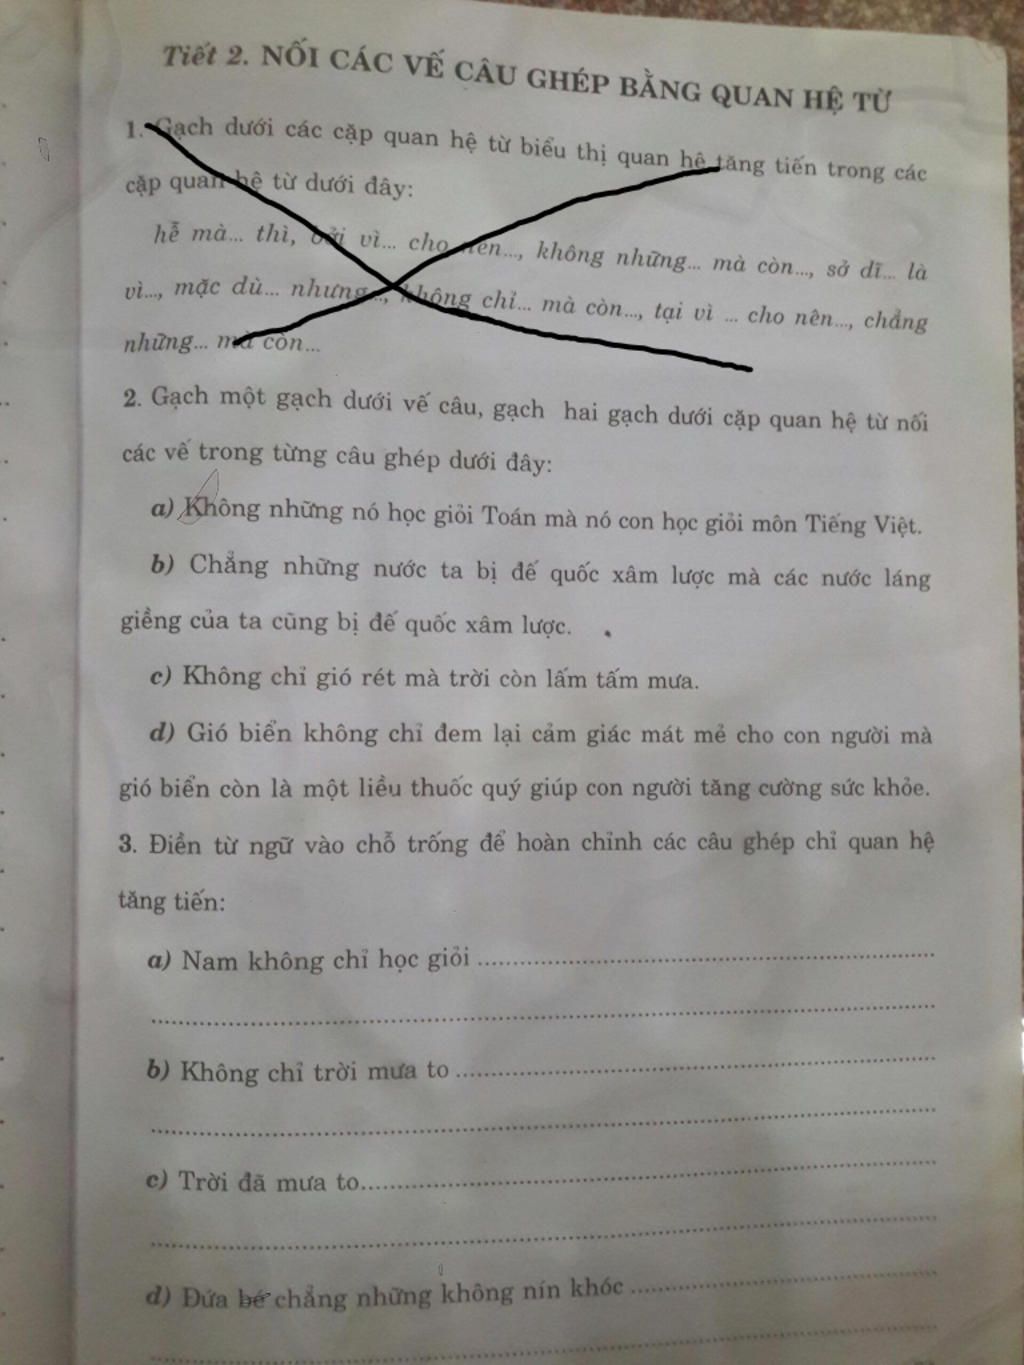 Tiết 2. NỐI CÁC VẾ CÂU GHÉP BẰNG QUAN HỆ TỪ
1. Gạch dưới các cặp quan hệ từ biểu thị quan hệ tăng tiến trong các
cặp quan hệ từ dưới đây:
hễ mà... thì, bởi vì... cho nên..., không những... mà còn..., sở dĩ... là
vì..., mặc dù... nhưng..., không chỉ... mà còn..., tại vì ... cho nên..., chẳng
những... mà còn...
2. Gạch một gạch dưới vế câu, gạch hai gạch dưới cặp quan hệ từ nối
các vế trong từng câu ghép dưới đây:
a) Không những nó học giỏi Toán mà nó con học giỏi môn Tiếng Việt.
b) Chẳng những nước ta bị đế quốc xâm lược mà các nước láng
giềng của ta cũng bị đế quốc xâm lược.
c) Không chỉ gió rét mà trời còn lấm tấm mưa.
d) Gió biển không chỉ đem lại cảm giác mát mẻ cho con người mà
gió biển còn là một liều thuốc quý giúp con người tăng cường sức khỏe.
3. Điền từ ngữ vào chỗ trống để hoàn chỉnh các câu ghép chỉ quan hệ
tăng tiến:
a) Nam không chỉ học giỏi
b) Không chỉ trời mưa to
c) Trời đã mưa to
d) Đứa bé chẳng những không nín khóc